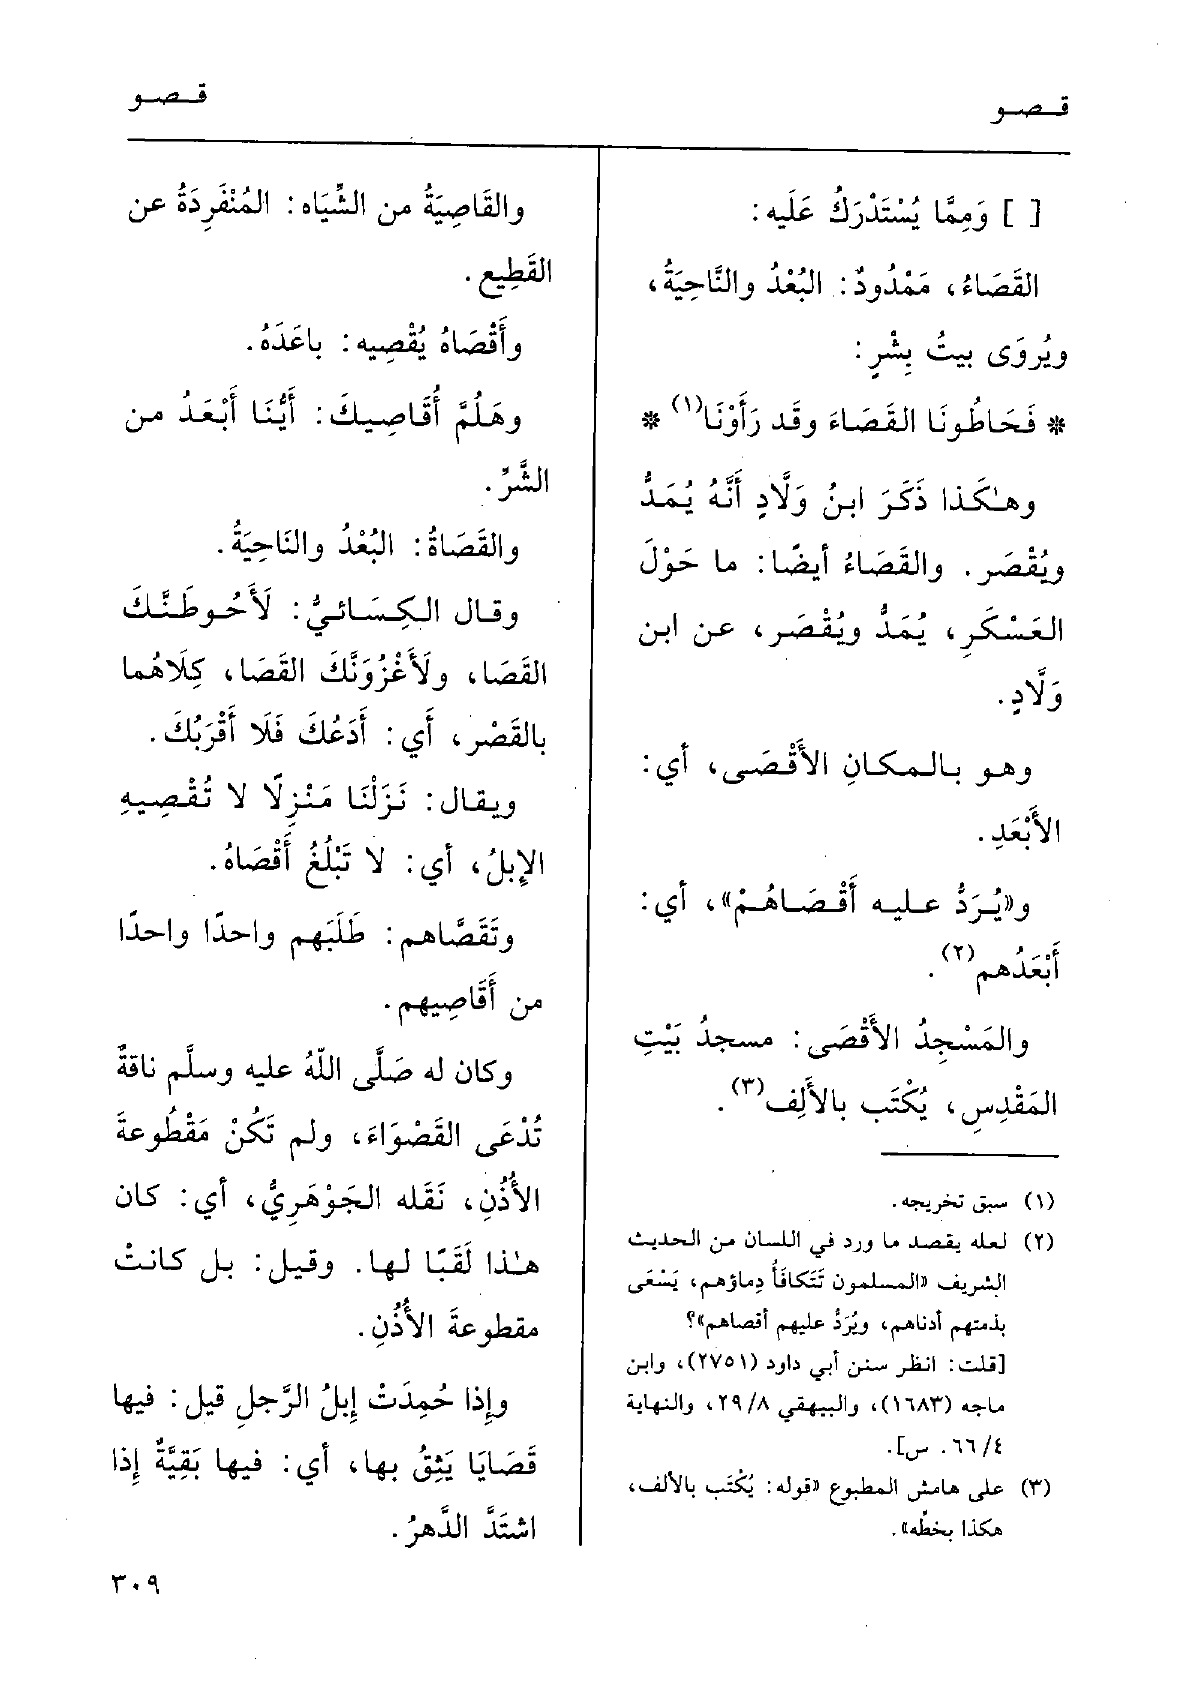 قـصـو
قـصـو
[ ] وَمِمَّا يُسْتَدْرَكُ عَلَيه:
القَصَاءُ، مَمْدُودٌ: البُعْدُ والنَّاحِيَةُ،
ويُروَى بيتُ بِشْرٍ:
* فَحَاطُونَا القَصَاءَ وقَد رَأَوْنَا(١) *
وهـٰكَـذا ذَكَرَ ابنُ وَلَّادٍ أَنَّهُ يُمَدُّ
ويُقْصَر. والقَصَاءُ أيضًا: ما حَوْلَ
العَسْكَرِ، يُمَدُّ ويُقْصَر، عن ابن
وَلَّادٍ.
وهـو بـالـمكـانِ الأَقْصَى، أي:
الأَبْعَدِ.
و«يُـرَدُّ عـلـيـه أَقْـصَـاهُـمْ»، أي:
أَبْعَدُهم(٢).
والمَسْجِدُ الأَقْصَى: مسجدُ بَيْتِ
المَقْدِسِ، يُكْتَب بالأَلِف(٣).
(١) سبق تخريجه.
(٢) لعله يقصد ما ورد في اللسان من الحديث
الشريف «المسلمون تَتَكافَأُ دِماؤهم، يَسْعَى
بذمتهم أدناهم، ويُرَدُّ عليهم أقصاهم»؟
[قلت: انظر سنن أبي داود (٢٧٥١)، وابن
ماجه (١٦٨٣)، والبيهقي ٢٩/٨، والنهاية
٦٦/٤. س].
(٣) على هامش المطبوع «قوله: يُكْتَب بالألف،
هكذا بخطّه».
والقَاصِيَةُ من الشِّيَاه: المُنْفَرِدَةُ عن
القَطِيع.
وأَقْصَاهُ يُقْصِيه: باعَدَهُ.
وهَلُمَّ أُقَاصِيكَ: أَيُّنَا أَبْعَدُ من
الشَّرِّ.
والقَصَاةُ: البُعْدُ والنَاحِيَةُ.
وقـال الـكِـسَـائـيُّ: لَأَحُـوطَـنَّـكَ
القَصَا، ولَأَغْزُوَنَّكَ القَصَا، كِلَاهُما
بالقَصْر، أَي: أَدَعُكَ فَلَا أَقْرَبُكَ.
ويقال: نَزَلْنَا مَنْزِلًا لا تُقْصِيهِ
الإِبلُ، أي: لا تَبْلُغُ أَقْصَاهُ.
وتَقَصَّاهم: طَلَبَهم واحدًا واحدًا
من أَقَاصِيهم.
وكان له صَلَّى اللهُ عليه وسلَّم ناقةٌ
تُدْعَى القَصْوَاءَ، ولم تَكُنْ مَقْطُوعةَ
الأُذُنِ، نَقَله الجَوْهَرِيُّ، أي: كان
هـٰذا لَقَبًا لها. وقيل: بل كانتْ
مقطوعةَ الأُذُنِ.
وإِذا حُمِدَتْ إِبلُ الرَّجلِ قيل: فيها
قَصَايَا يَثِقُ بها، أي: فيها بَقِيَّةٌ إِذا
اشتَدَّ الدَّهرُ.
٣٠٩